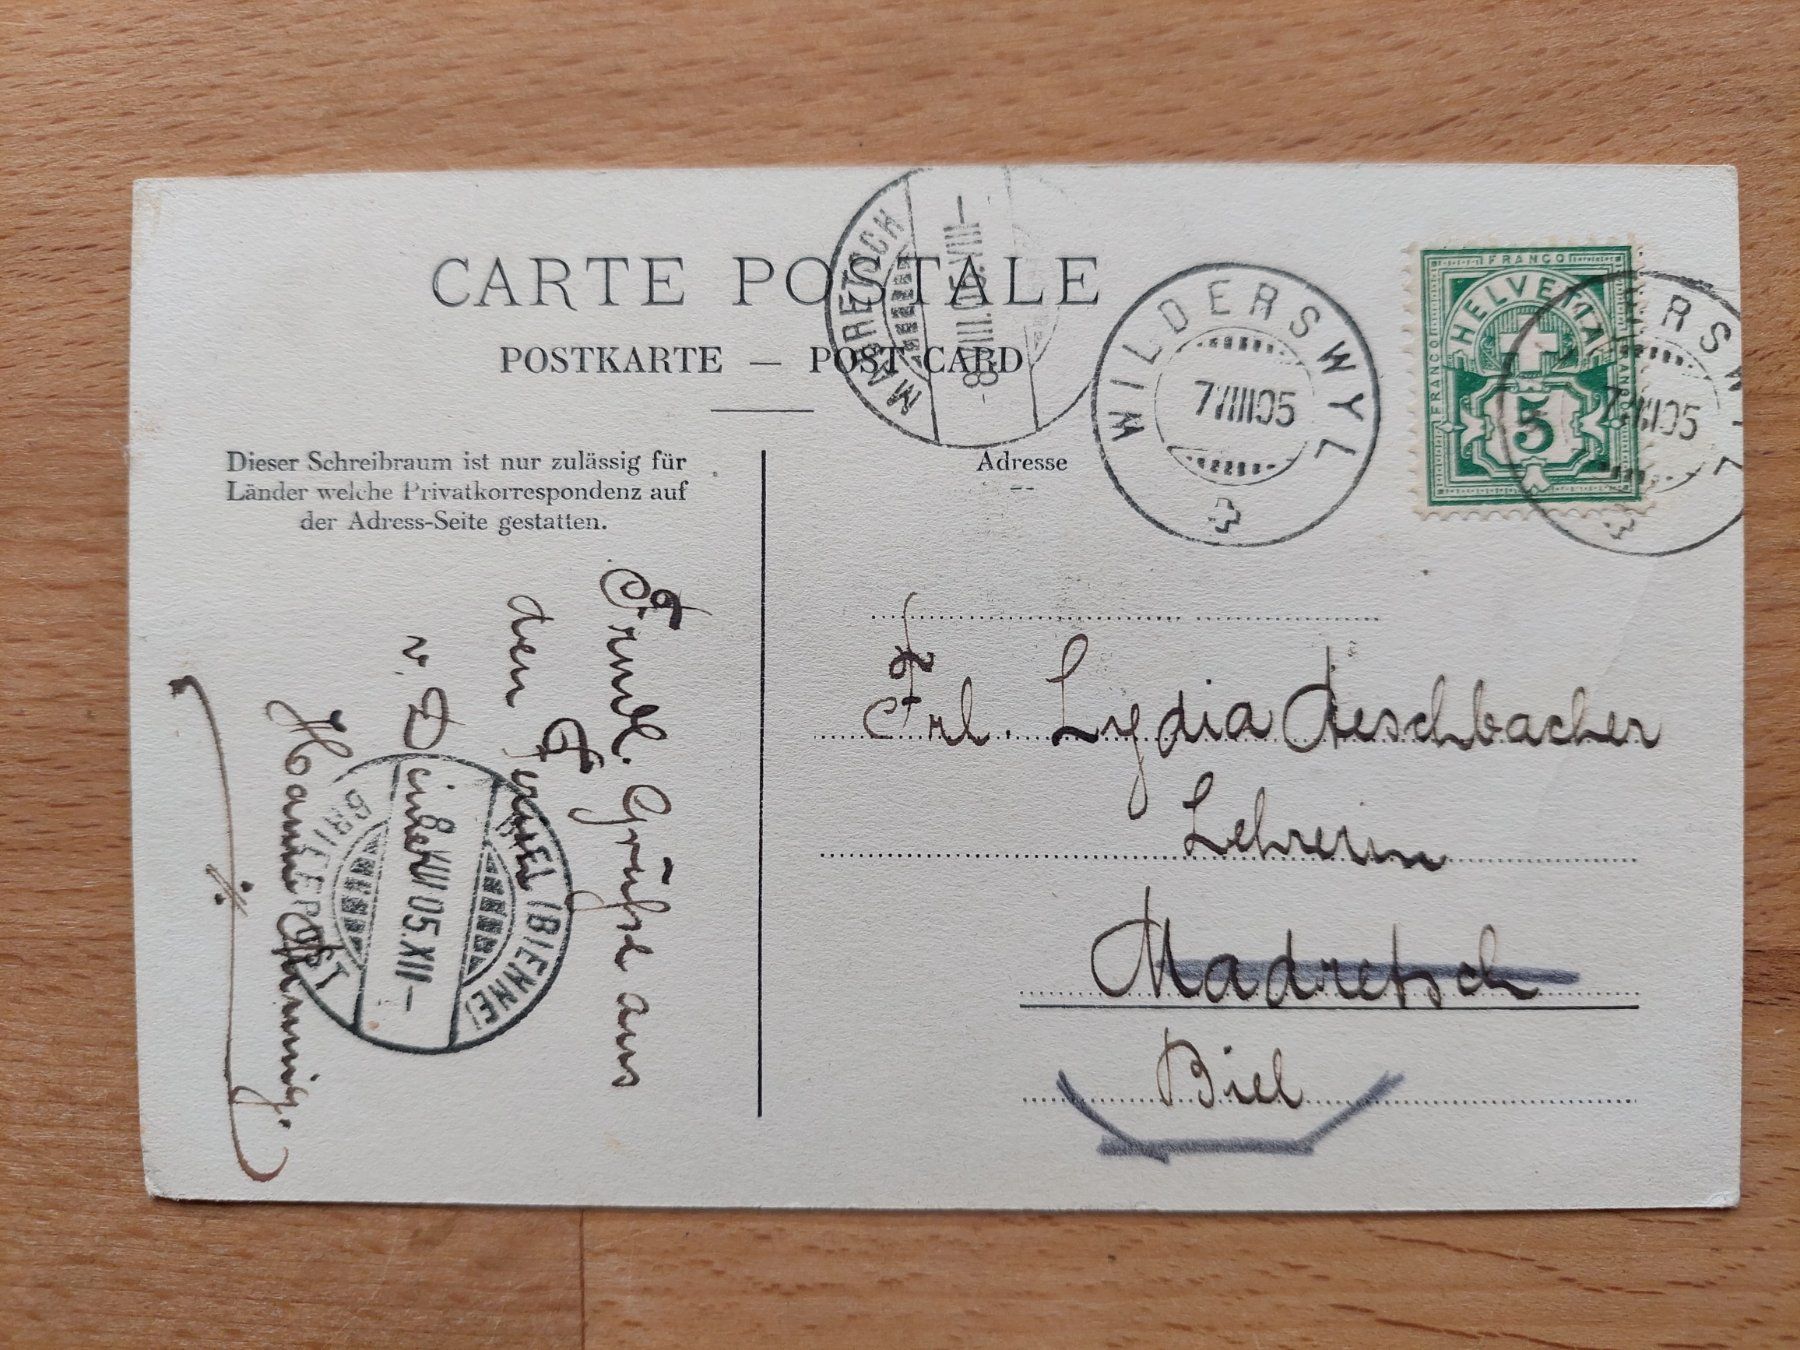 CARTE POSTALE
POSTKARTE — POST CARD
MADRETSCH
-8.VIII.05.VIII-
WILDERSWYL
7.VIII.05
FRANCO
FRANCO
HELVETIA
5
FRANCO
ERSWYL
7.VIII.05
Dieser Schreibraum ist nur zulässig für
Länder welche Privatkorrespondenz auf
der Adress-Seite gestatten.
Adresse
Frndl. Grüsse aus
den Ferien
v. Deiner
Hanni
BIEL (BIENNE)
8.VIII.05.XII-
BRIEFPOST
Frl. Lydia Aeschbacher
Lehrerin
Madretsch
Biel